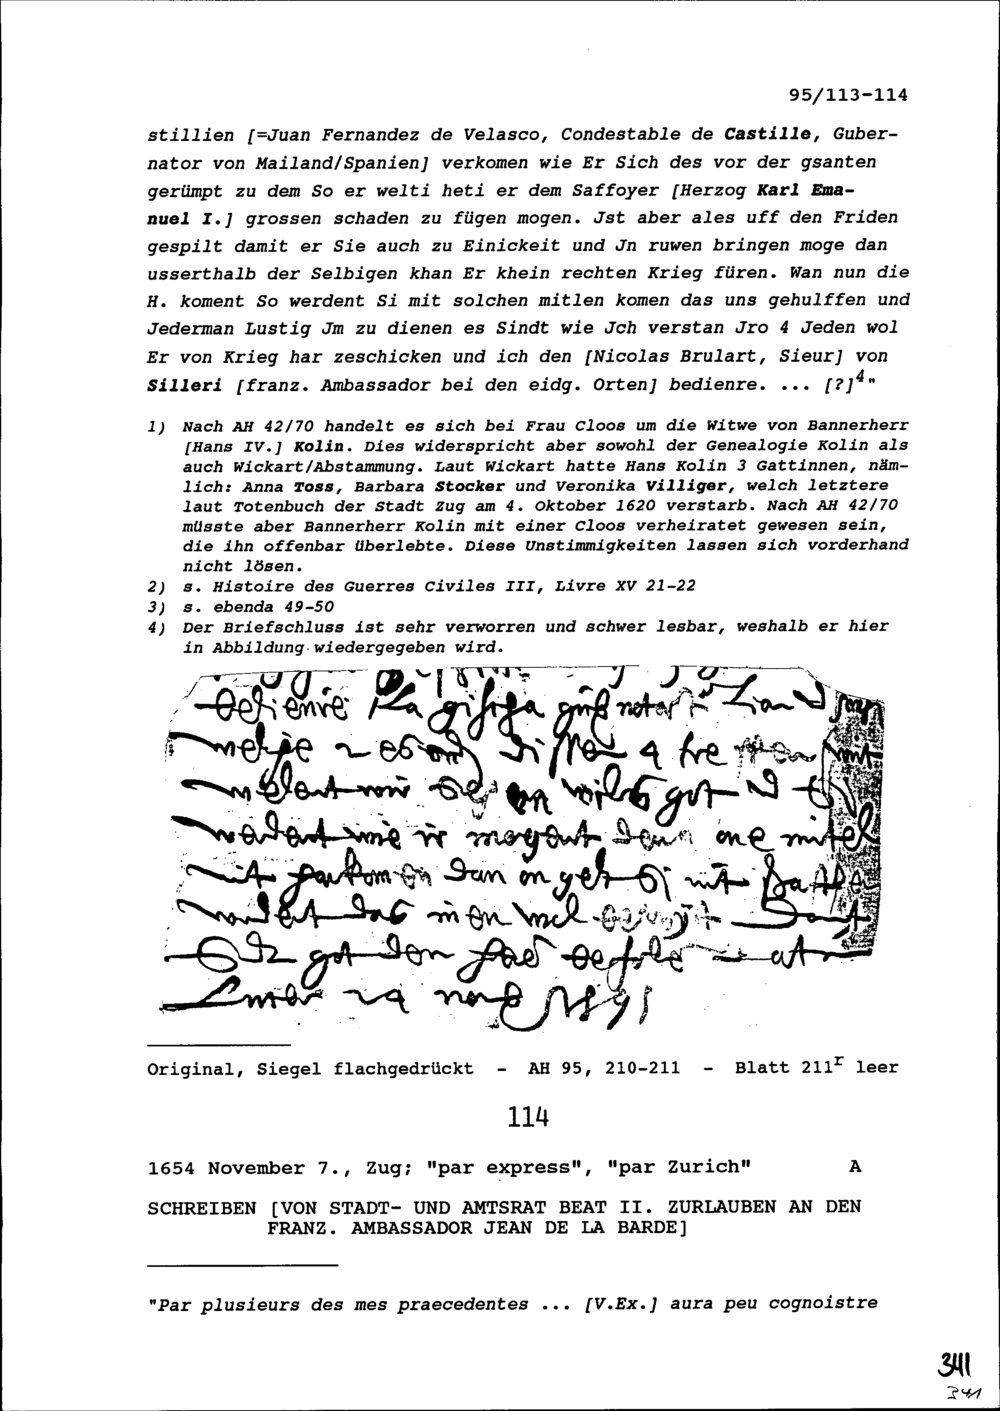 95/113-114
stillien [=Juan Fernandez de Velasco, Condestable de Castille, Guber-
nator von Mailand/Spanien] verkomen wie Er Sich des vor der gsanten
gerümpt zu dem So er welti heti er dem Saffoyer [Herzog Karl Ema-
nuel I.] grossen schaden zu fügen mogen. Jst aber ales uff den Friden
gespilt damit er Sie auch zu Einickeit und Jn ruwen bringen moge dan
usserthalb der Selbigen khan Er khein rechten Krieg füren. Wan nun die
H. koment So werdent Si mit solchen mitlen komen das uns gehulffen und
Jederman Lustig Jm zu dienen es Sindt wie Jch verstan Jro 4 Jeden wol
Er von Krieg har zeschicken und ich den [Nicolas Brulart, Sieur] von
Silleri [franz. Ambassador bei den eidg. Orten] bedienre. ... [?]4"
1) Nach AH 42/70 handelt es sich bei Frau Cloos um die Witwe von Bannerherr
[Hans IV.] Kolin. Dies widerspricht aber sowohl der Genealogie Kolin als
auch Wickart/Abstammung. Laut Wickart hatte Hans Kolin 3 Gattinnen, näm-
lich: Anna Toss, Barbara Stocker und Veronika Villiger, welch letztere
laut Totenbuch der Stadt Zug am 4. Oktober 1620 verstarb. Nach AH 42/70
müsste aber Bannerherr Kolin mit einer Cloos verheiratet gewesen sein,
die ihn offenbar überlebte. Diese Unstimmigkeiten lassen sich vorderhand
nicht lösen.
2) s. Histoire des Guerres Civiles III, Livre XV 21-22
3) s. ebenda 49-50
4) Der Briefschluss ist sehr verworren und schwer lesbar, weshalb er hier
in Abbildung wiedergegeben wird.
Original, Siegel flachgedrückt - AH 95, 210-211 - Blatt 211r leer
114
1654 November 7., Zug; "par express", "par Zurich" A
SCHREIBEN [VON STADT- UND AMTSRAT BEAT II. ZURLAUBEN AN DEN
FRANZ. AMBASSADOR JEAN DE LA BARDE]
"Par plusieurs des mes praecedentes ... [V.Ex.] aura peu cognoistre
341
341